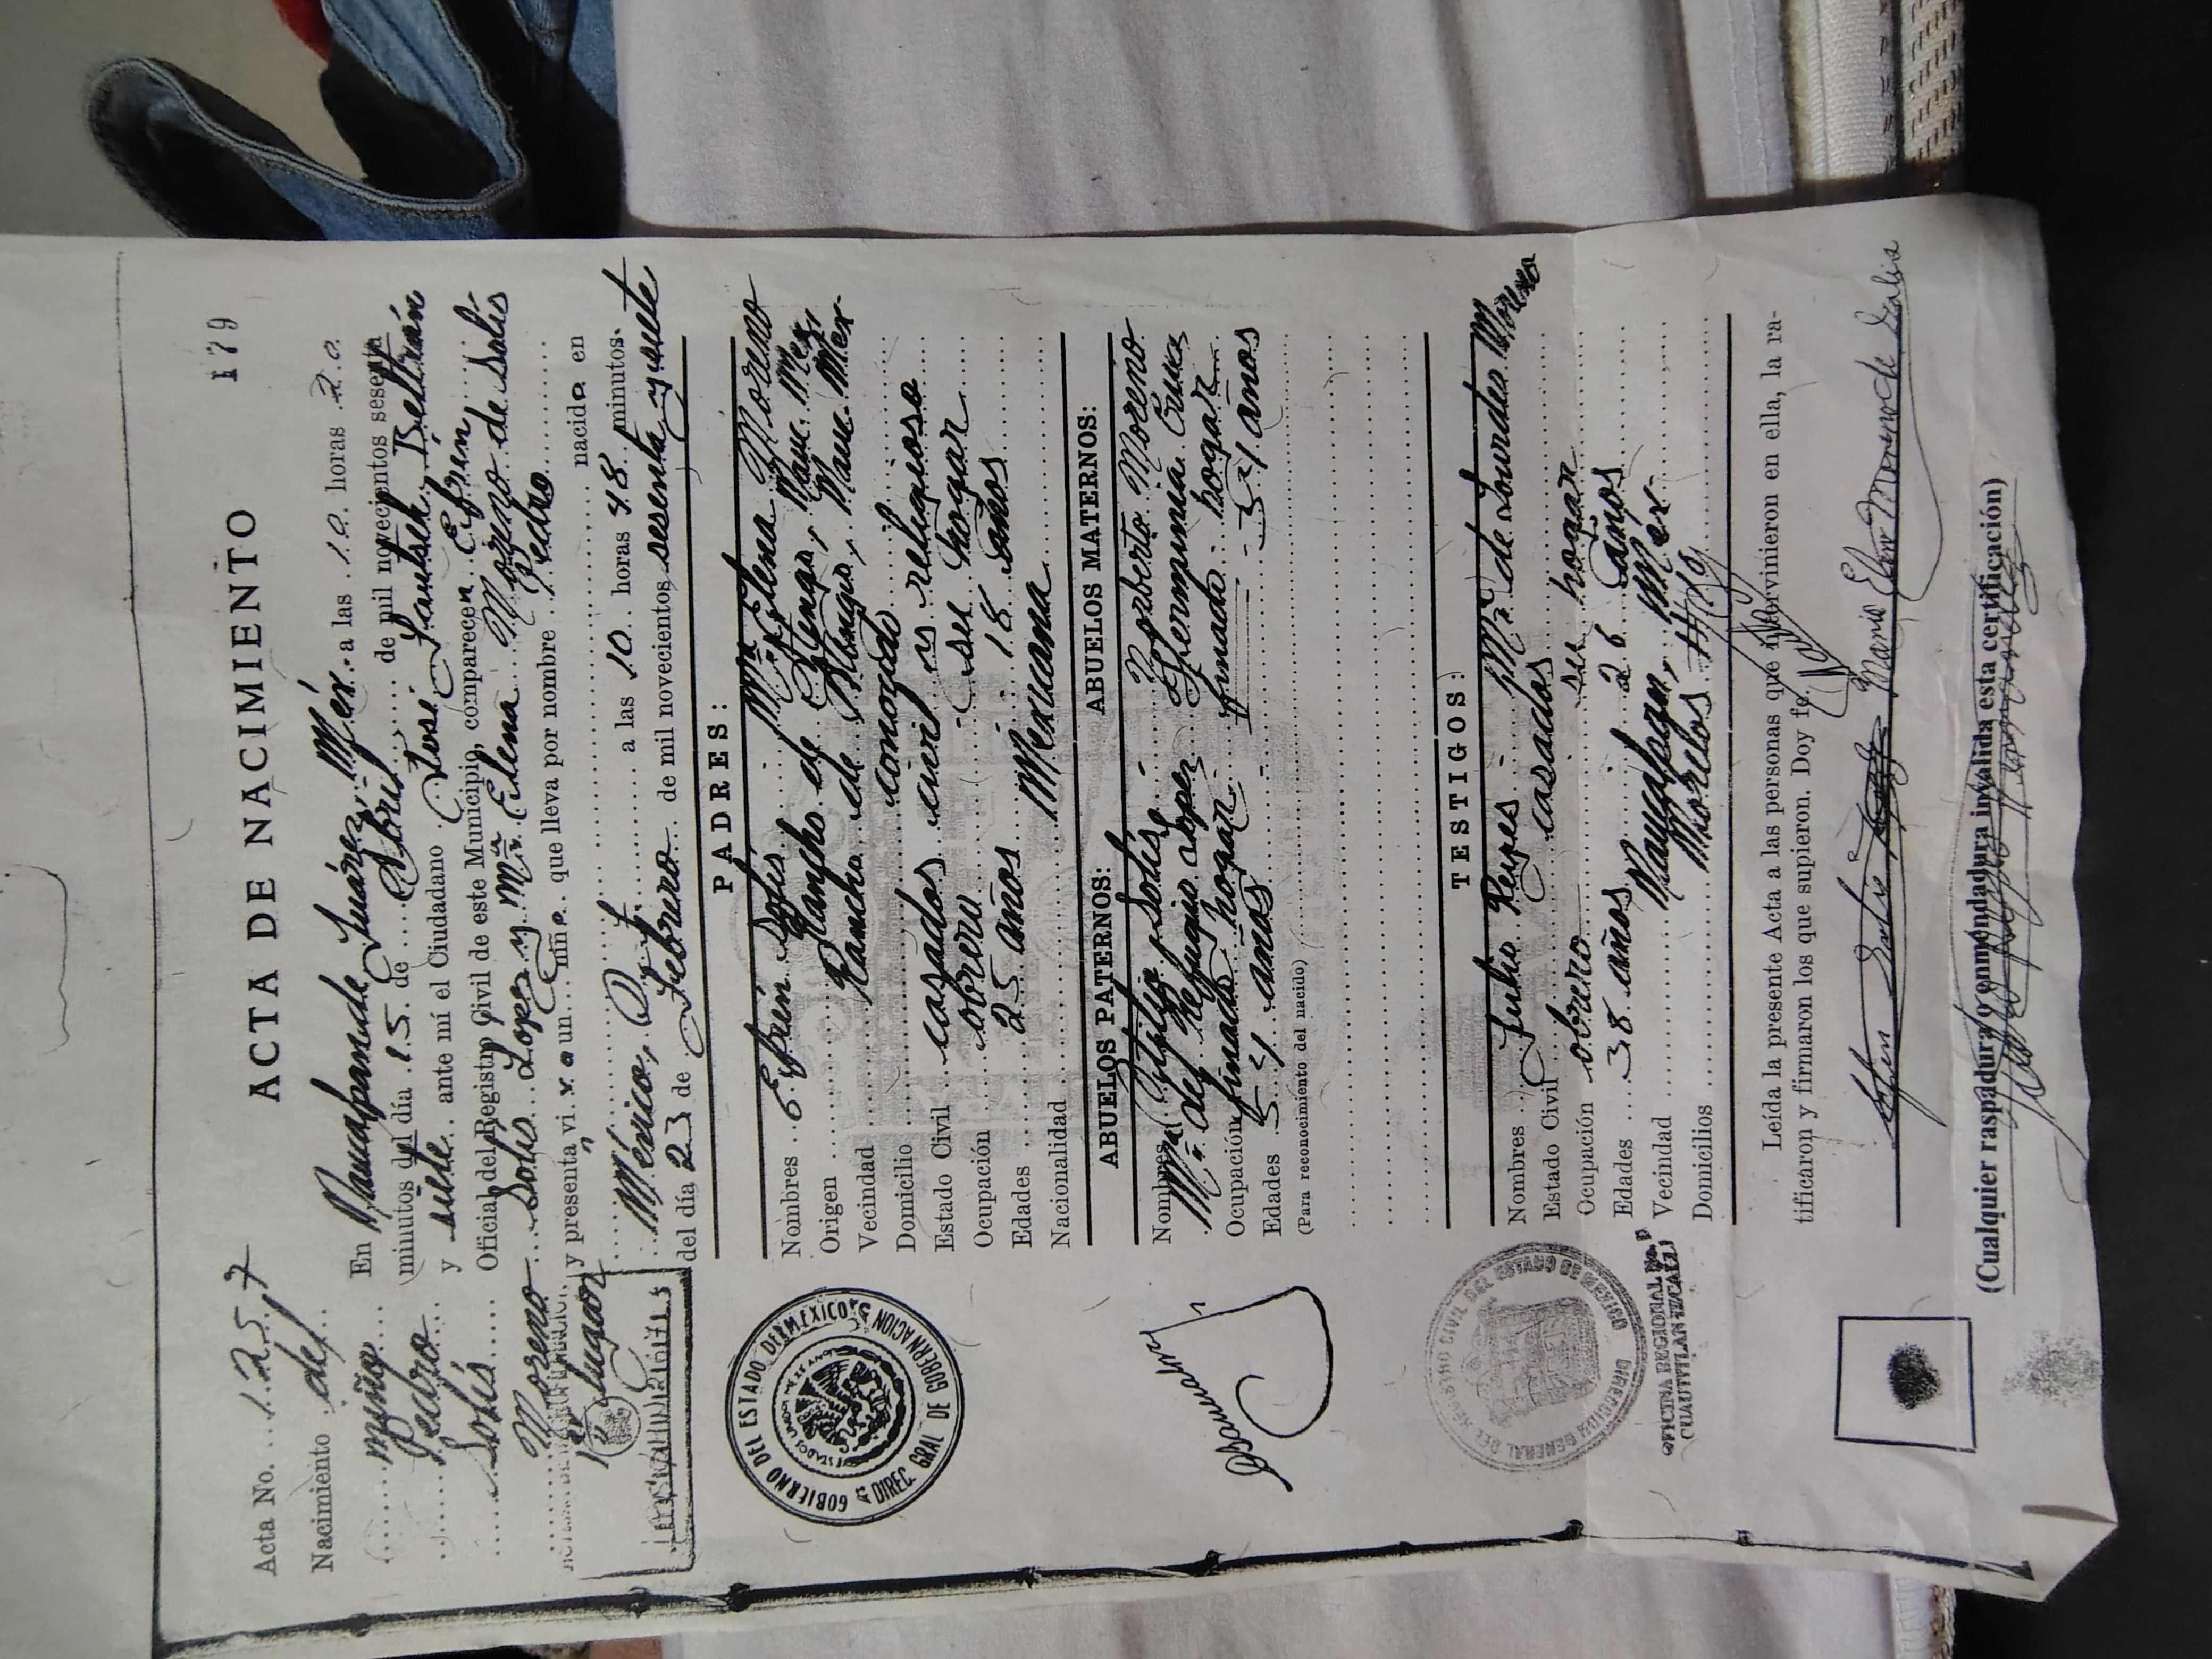 179
ACTA DE NACIMIENTO
Acta No. 1257
Nacimiento del
niño
Pedro
Solís
Moreno
1er lugar
En Naucalpan de Juárez, Méx. a las 10 horas 20
minutos del día 15 de Abril de mil novecientos sesenta
y siete ante mí el Ciudadano José Beltrán
Oficial del Registro Civil de este Municipio, comparecen Efrén
Solís Lopez y Mª Elena Moreno de Solís
y presenta vivo a un niño que lleva por nombre Pedro
nacido en
México, D. F. a las 10 horas 48 minutos
del día 23 de Febrero de mil novecientos sesenta y siete
PADRES:
Nombres Efrén Solís Mª Elena Moreno
Origen Rancho el Nauc. Mex.
Vecindad Rancho de Nauc. Mex
Domicilio conocido
Estado Civil casados civil y religioso
Ocupación obrero su hogar
Edades 25 años 18 años
Nacionalidad Mexicana
ABUELOS PATERNOS: ABUELOS MATERNOS:
Nombres Solís Norberto Moreno
Mª del Refugio Lopez Herminia
Ocupación finado hogar finado hogar
Edades 54 años 54 años
(Para reconocimiento del nacido)
TESTIGOS:
Nombres Julio Reyes Mª de Lourdes Moreno
Estado Civil casados
Ocupación obrero su hogar
Edades 38 años 26 años
Vecindad Naucalpan, Mex.
Domicilios Morelos
Leída la presente Acta a las personas que intervinieron en ella, la ra-
tificaron y firmaron los que supieron. Doy fe.
Maria Elena Moreno de Solis
(Cualquier raspadura o enmendadura invalida esta certificación)
GOBIERNO DEL ESTADO DE MEXICO
DIREC. GRAL DE GOBERNACION
ESTADOS UNIDOS MEXICANOS
DIRECCION GENERAL DEL REGISTRO CIVIL DEL ESTADO DE MEXICO
OFICINA REGIONAL No.
CUAUTITLAN IZCALLI